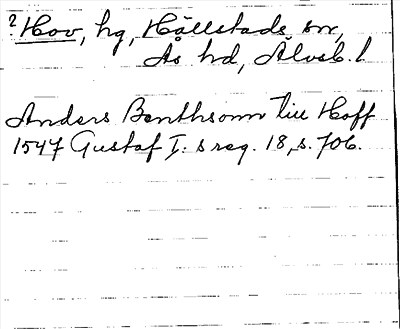 ? Hov, hg, Hällstads sn,
Ås hd, Älvsb. l
Anders Benthsonn till Hoff
1547 Gustaf I: s reg. 18, s. 706.